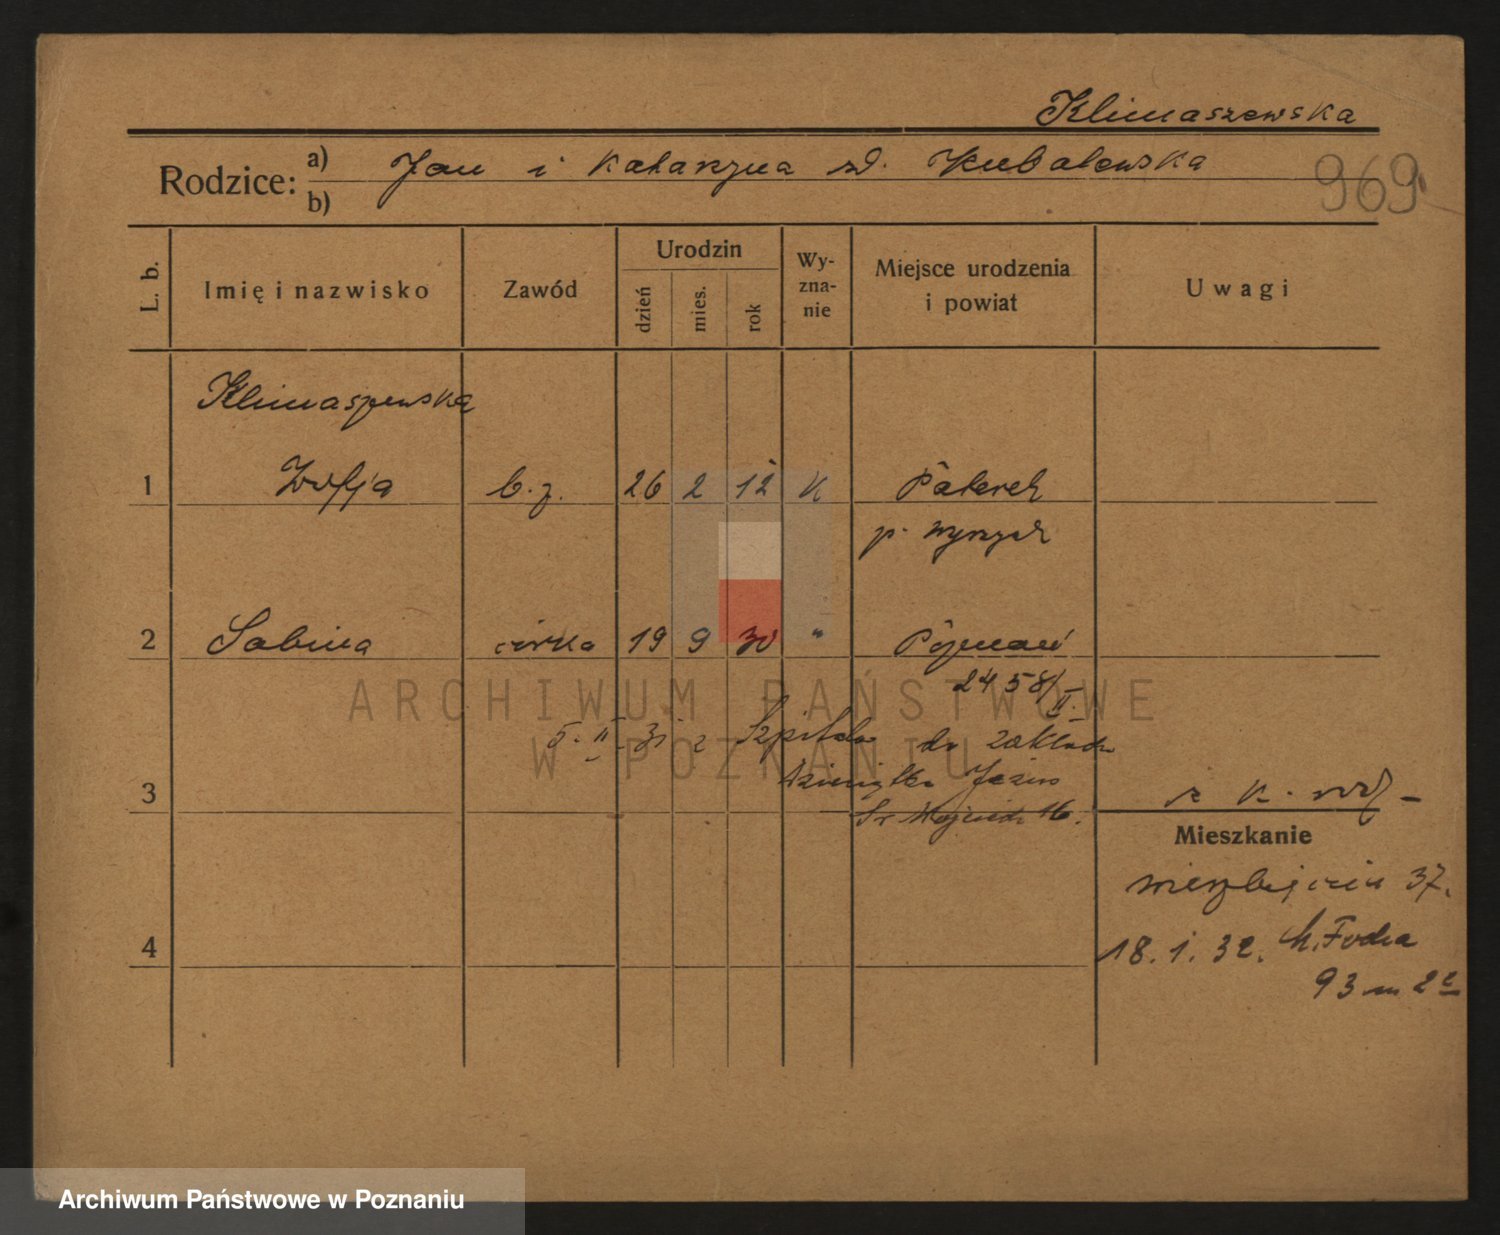 Klimaszewska
Rodzice: a) Jan i Katarzyna zd. Kubalewska
b)
969
L. b.
Imię i nazwisko
Zawód
Urodzin
dzień
mies.
rok
Wy-
zna-
nie
Miejsce urodzenia
i powiat
Uwagi
Klimaszewska
1 Zofja b. z. 26 2 12 K Paterek
p. Wyrzysk
2 Sabina córka 19 9 30 " Poznań
2458/II.
ARCHIWUM PAŃSTWOWE
5. II. 31 z Szpitala do zakładu
W POZNANIU
Dzieciątka Jezus
3 Św Wojciech 16.
Mieszkanie
Wierzbięcice 37.
4 18. 1. 32. M. Focha
93 m 2
Archiwum Państwowe w Poznaniu